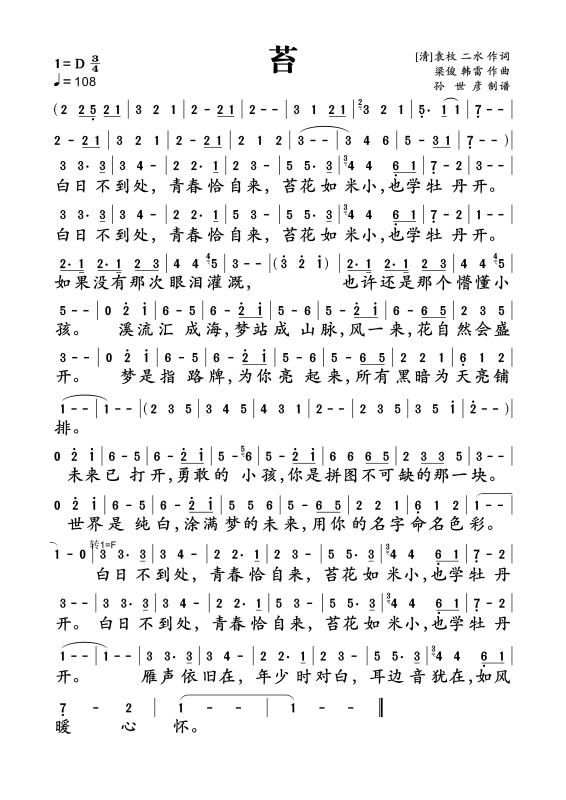 苔
1=D 3/4
♩=108
[清]袁枚 二水 作词
梁俊 韩雷 作曲
孙 世 彦 制谱
(2 2 5 2 1 | 3 2 1 | 2 - 2 1 | 2 - - | 3 1 2 1 | 2 3 2 1 | 5· 1 1 | 7 - - |
2 - 2 1 | 3 2 1 | 2 - 2 1 | 2 1 2 | 3 - - | 3 4 6 | 5 - 3 1 | 7 - - )|
3 3· 3 | 3 4 - | 2 2· 1 | 2 3 - | 5 5· 3 | 3 4 4 6 1 | 7 - 2 | 3 - - |
白日 不到处, 青春恰自来, 苔花如 米小,也学牡 丹开。
3 3· 3 | 3 4 - | 2 2· 1 | 2 3 - | 5 5· 3 | 3 4 4 6 1 | 7 - 2 | 1 - - |
白日 不到处, 青春恰自来, 苔花如 米小,也学牡 丹开。
2· 1 2· 1 | 2 2 3 | 4 4 4 5 | 3 - - | (3· 2 1) | 2· 1 2· 1 | 2 2 3 | 4 4 4 5 |
如果没有那次 眼泪灌溉, 也许还是那个 懵懂小
5 - - | 0 2 1 | 6 - 5 | 6 - 2 1 | 5 - 6 | 5 - 6 | 5 - 6 5 | 2 3 3 5 |
孩。 溪流汇 成海,梦站成 山脉,风一来,花自然会盛
3 - - | 0 2 1 | 6 - 5 | 6 - 2 1 | 5 - 6 | 5 - 5 | 5 - 6 5 | 2 2 1 | 6 1 2 |
开。 梦是指 路牌,为你亮 起来,所有黑暗为天亮铺
1 - - | 1 - - | (2 3 5 | 3 4 5 | 4 3 1 | 2 - - | 2 3 5 | 3 5 1 | 2 - -)|
排。
0 2 1 | 6 - 5 | 6 - 2 1 | 5 - 5 6 | 5 - 2 1 | 6 6 6 5 | 2 3 3 5 | 3 - - |
未来已 打开,勇敢的 小孩,你是拼图不可缺的那一块。
0 2 1 | 6 - 5 | 6 - 2 1 | 5 5 6 | 5 - 6 5 | 2 2 1 | 6 1 2 | 1 - - |
世界是 纯白,涂满梦的未来,用你的名字命名色彩。
转1=F
1 - 0 | 3 3· 3 | 3 4 - | 2 2· 1 | 2 3 - | 5 5· 3 | 3 4 4 6 1 | 7 - 2 |
白日 不到处, 青春恰自来, 苔花如 米小,也学牡 丹
3 - - | 3 3· 3 | 3 4 - | 2 2· 1 | 2 3 - | 5 5· 3 | 3 4 4 6 1 | 7 - 2 |
开。 白日 不到处, 青春恰自来, 苔花如 米小,也学牡 丹
1 - - | 1 - - | 3 3· 3 | 3 4 - | 2 2· 1 | 2 3 - | 5 5· 3 | 3 4 4 6 1 |
开。 雁声依旧在, 年少时对白, 耳边音犹在,如风
7 - 2 | 1 - - | 1 - - ‖
暖 心 怀。